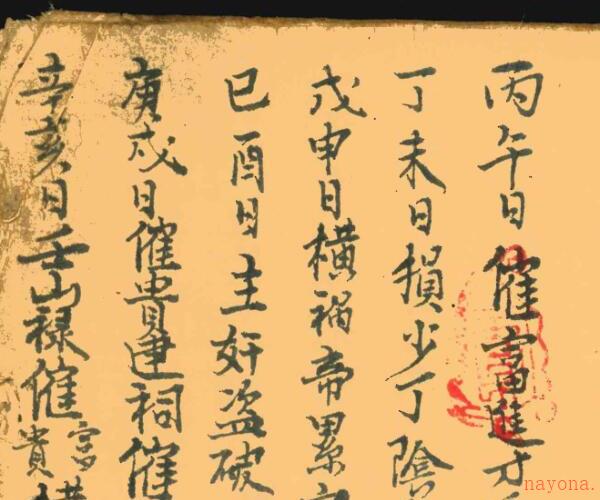 丙午日催富進才
丁未日損少丁陰
戊申日橫禍帝累
己酉日主奸盗破
庚戍日催貴建祠催
辛亥日壬山禄催富貴
nayona.